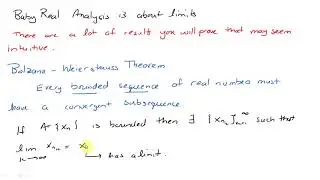 Baby Real Analysis is about limits
There are a lot of results you will prove that may seem
intuitive.
Bolzano - Weierstauss Theorem
Every bounded sequence of real number must
have a convergent subsequence.
If {xn} is bounded then ∃ {xnk}∞ such that
lim xnk = x
k→∞
↳ has a limit.